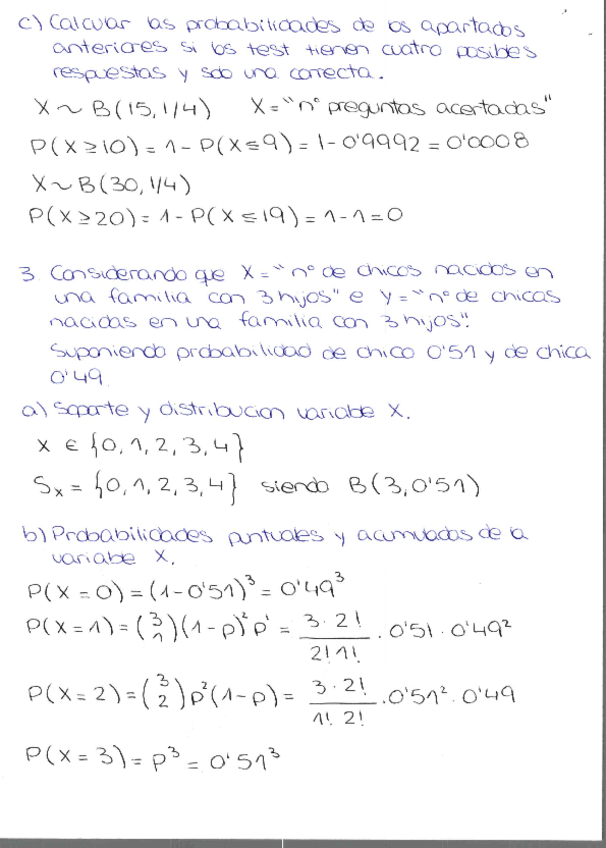 c) Calcular las probabilidades de los apartados
anteriores si los test tienen cuatro posibles
respuestas y solo una correcta.
X ~ B(15, 1/4) X = "nº preguntas acertadas"
P(X ≥ 10) = 1 - P(X ≤ 9) = 1 - 0'9992 = 0'0008
X ~ B(30, 1/4)
P(X ≥ 20) = 1 - P(X ≤ 19) = 1 - 1 = 0
3. Considerando que X = "nº de chicos nacidos en
una familia con 3 hijos" e Y = "nº de chicas
nacidas en una familia con 3 hijos".
Suponiendo probabilidad de chico 0'51 y de chica
0'49.
a) Soporte y distribucion variable X.
X ∈ {0, 1, 2, 3, 4}
Sx = {0, 1, 2, 3, 4} siendo B(3, 0'51)
b) Probabilidades puntuales y acumuladas de la
variable X.
P(X = 0) = (1 - 0'51)³ = 0'49³
P(X = 1) = (3 1)(1 - p)²p¹ = 3 · 2! / 2! 1! · 0'51 · 0'49²
P(X = 2) = (3 2)p²(1 - p) = 3 · 2! / 1! 2! · 0'51² · 0'49
P(X = 3) = p³ = 0'51³